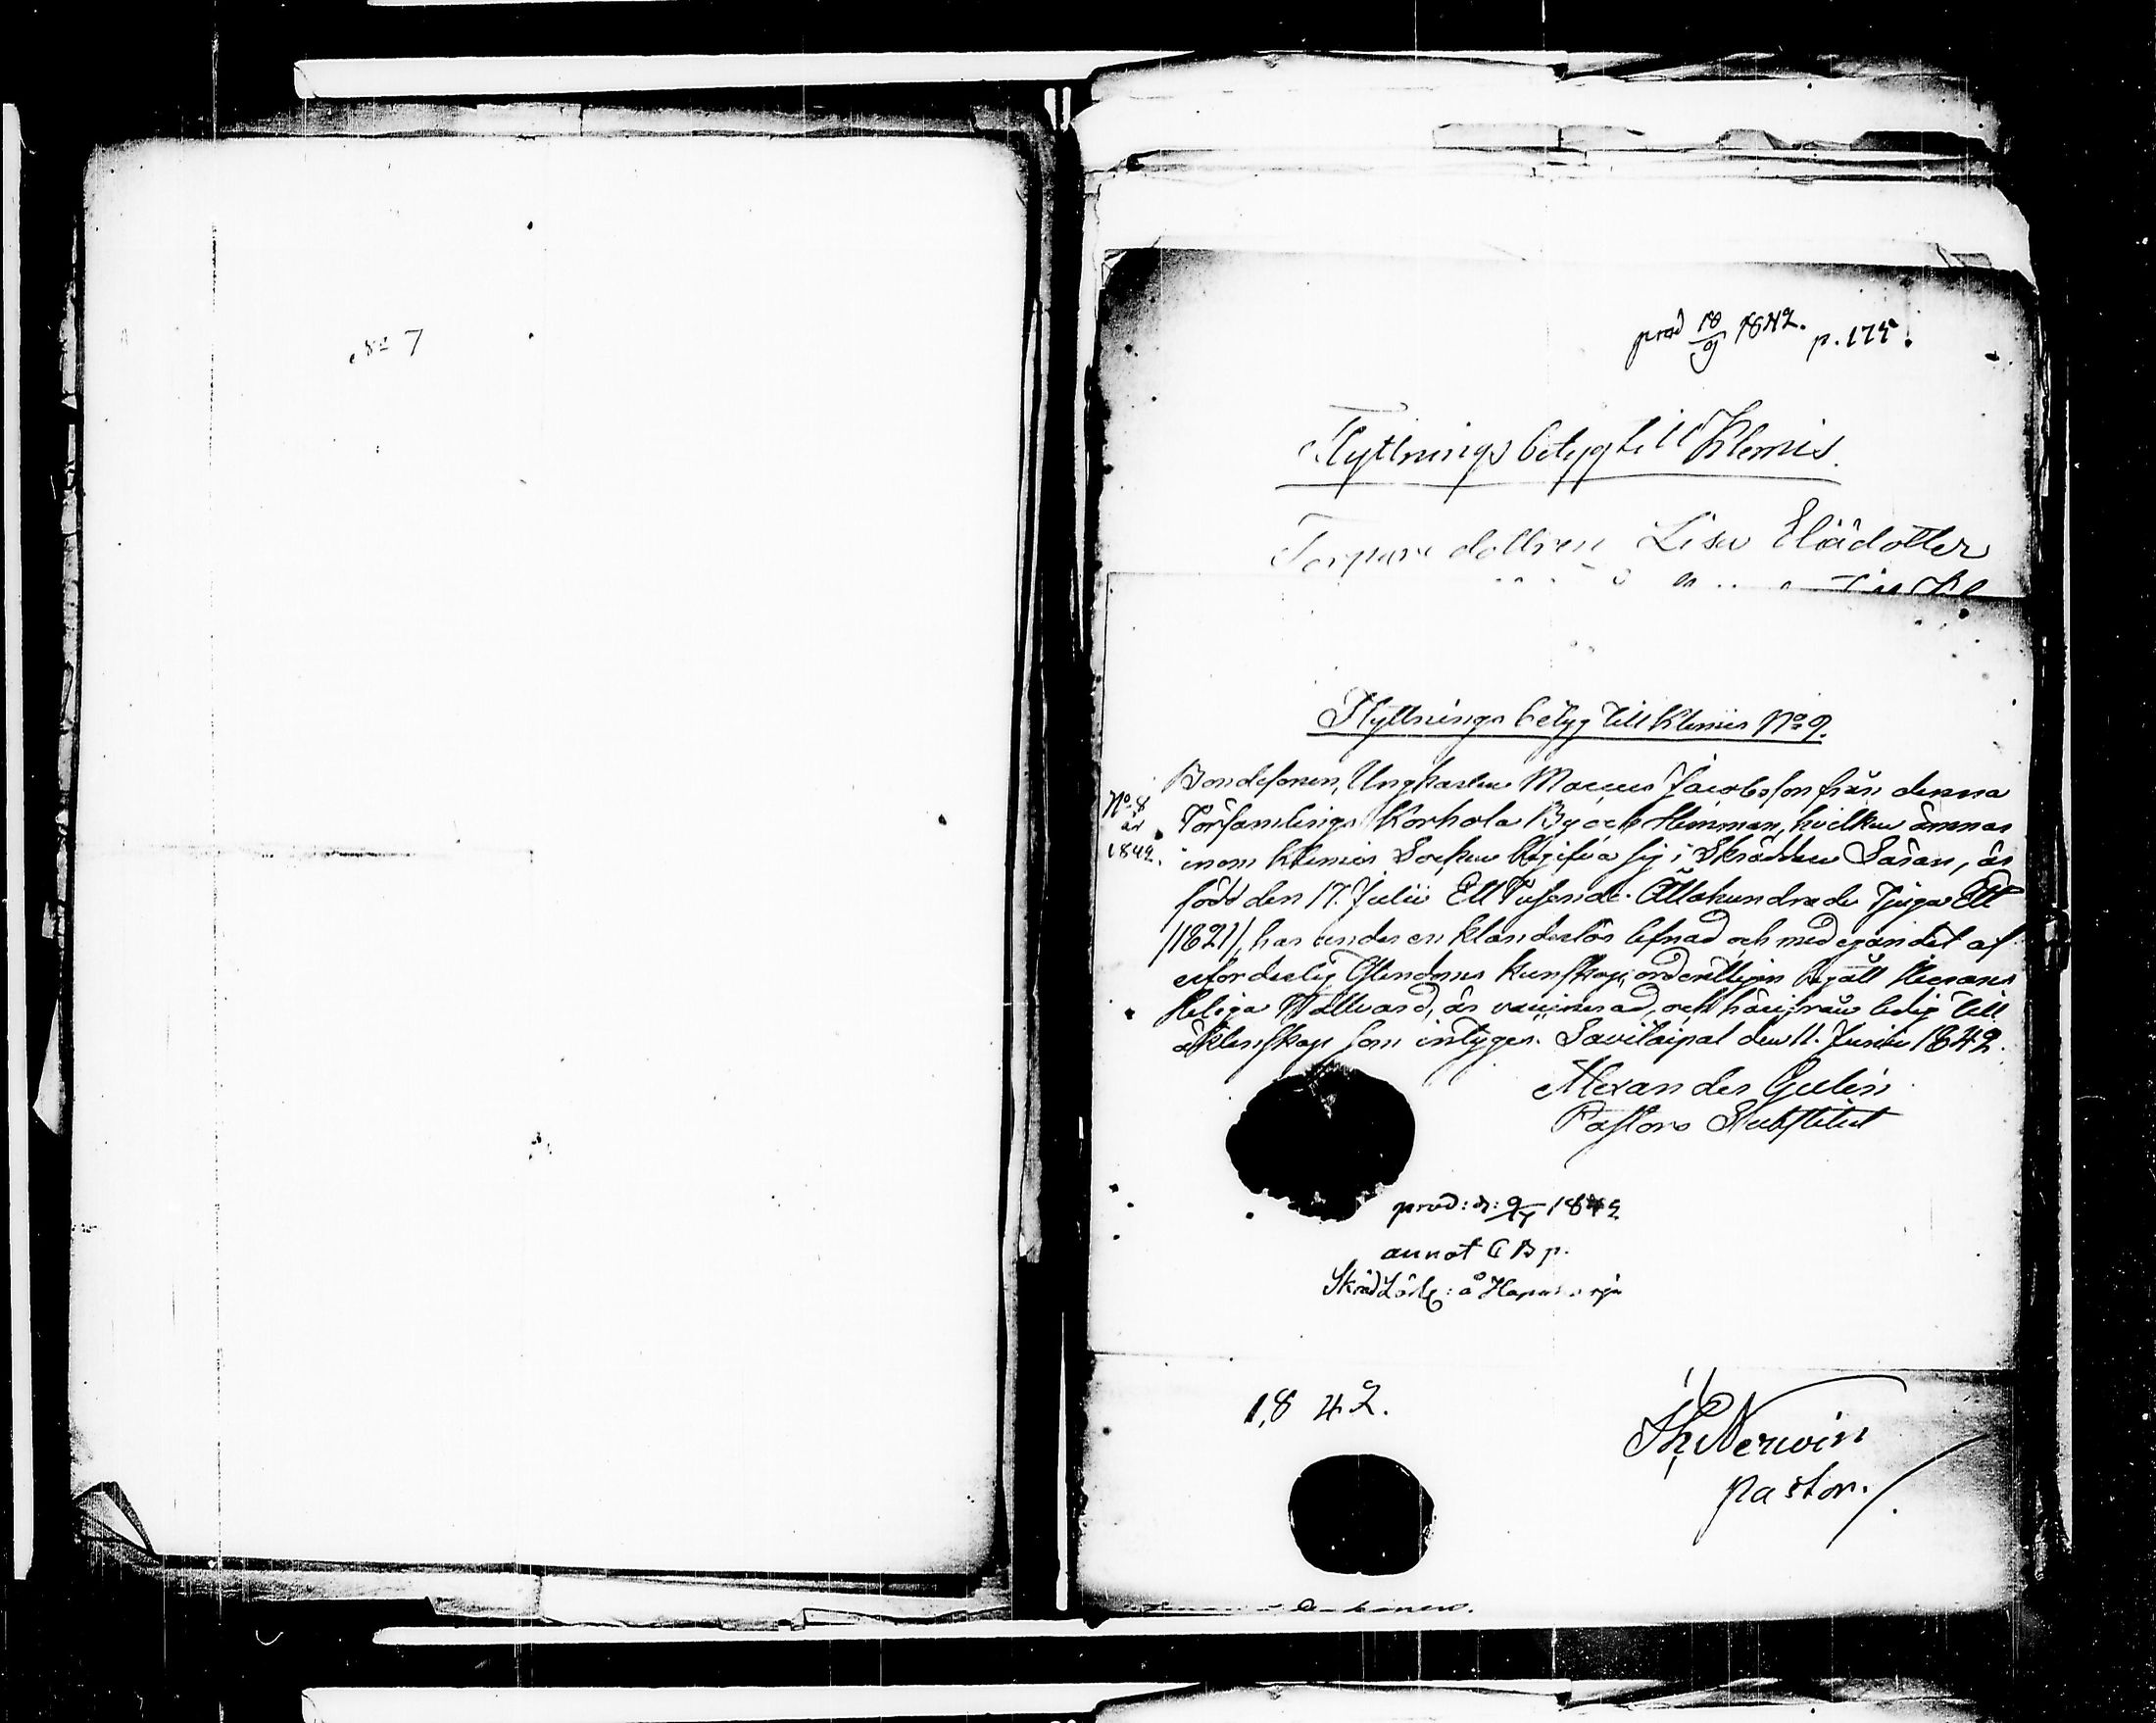 No 7
prod 18/9 1842. p. 175.
Flyttnings betyg till Klemis.
Torpare dottren Lisa Eliædotter
Flyttnings betyg till Klemis No 9.
Bondesonen, Ungkarlen Marcus Jacobsson från denna
No 8
år
1842.
Församlings Korhola By och Hemman, hvilken ämnar
inom Klemis Socken begifva sig i Skrädden Såran, är
född den 17. Julii Ett Tusende Åttahundrade Tjugu Ett
/1821/, har under en klanderlös lefnad och med egandet af
erforderlig Christendoms kunskap, ordentligen begått Herrans
Heliga Nattvard, är vaccinerad, och härifrån ledig till
äktenskap som intygar. Savitaipal den 11. Junii 1842.
Alexander Gulin
Pastors Substitut
prod: d: 1842
annot C B p.
Skräd Lärl: å
1842.
Th Nerwin
pastor.